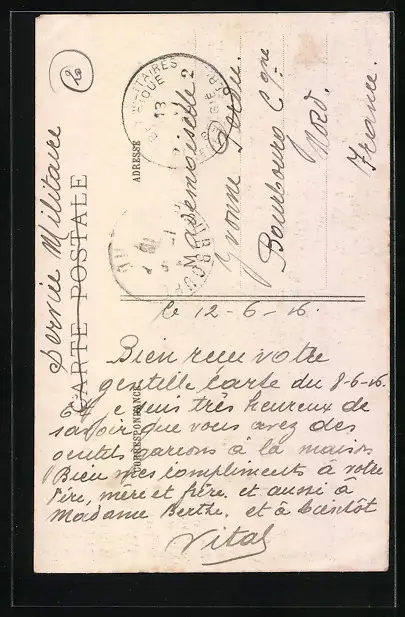 Service Militaire
CARTE POSTALE
ADRESSE
MILITAIRES
13
2
Mademoiselle
Yvonne
Bourbourg C^gne
Nord.
France.
CORRESPONDANCE
le 12-6-16.
Bien reçu votre
gentille carte du 8-6-16.
et je suis très heureux de
savoir que vous avez des
gentils garçons à la maison
Bien mes compliments à votre
Père, mère et frère. et aussi à
Madame Berthe. et à bientôt
Vital